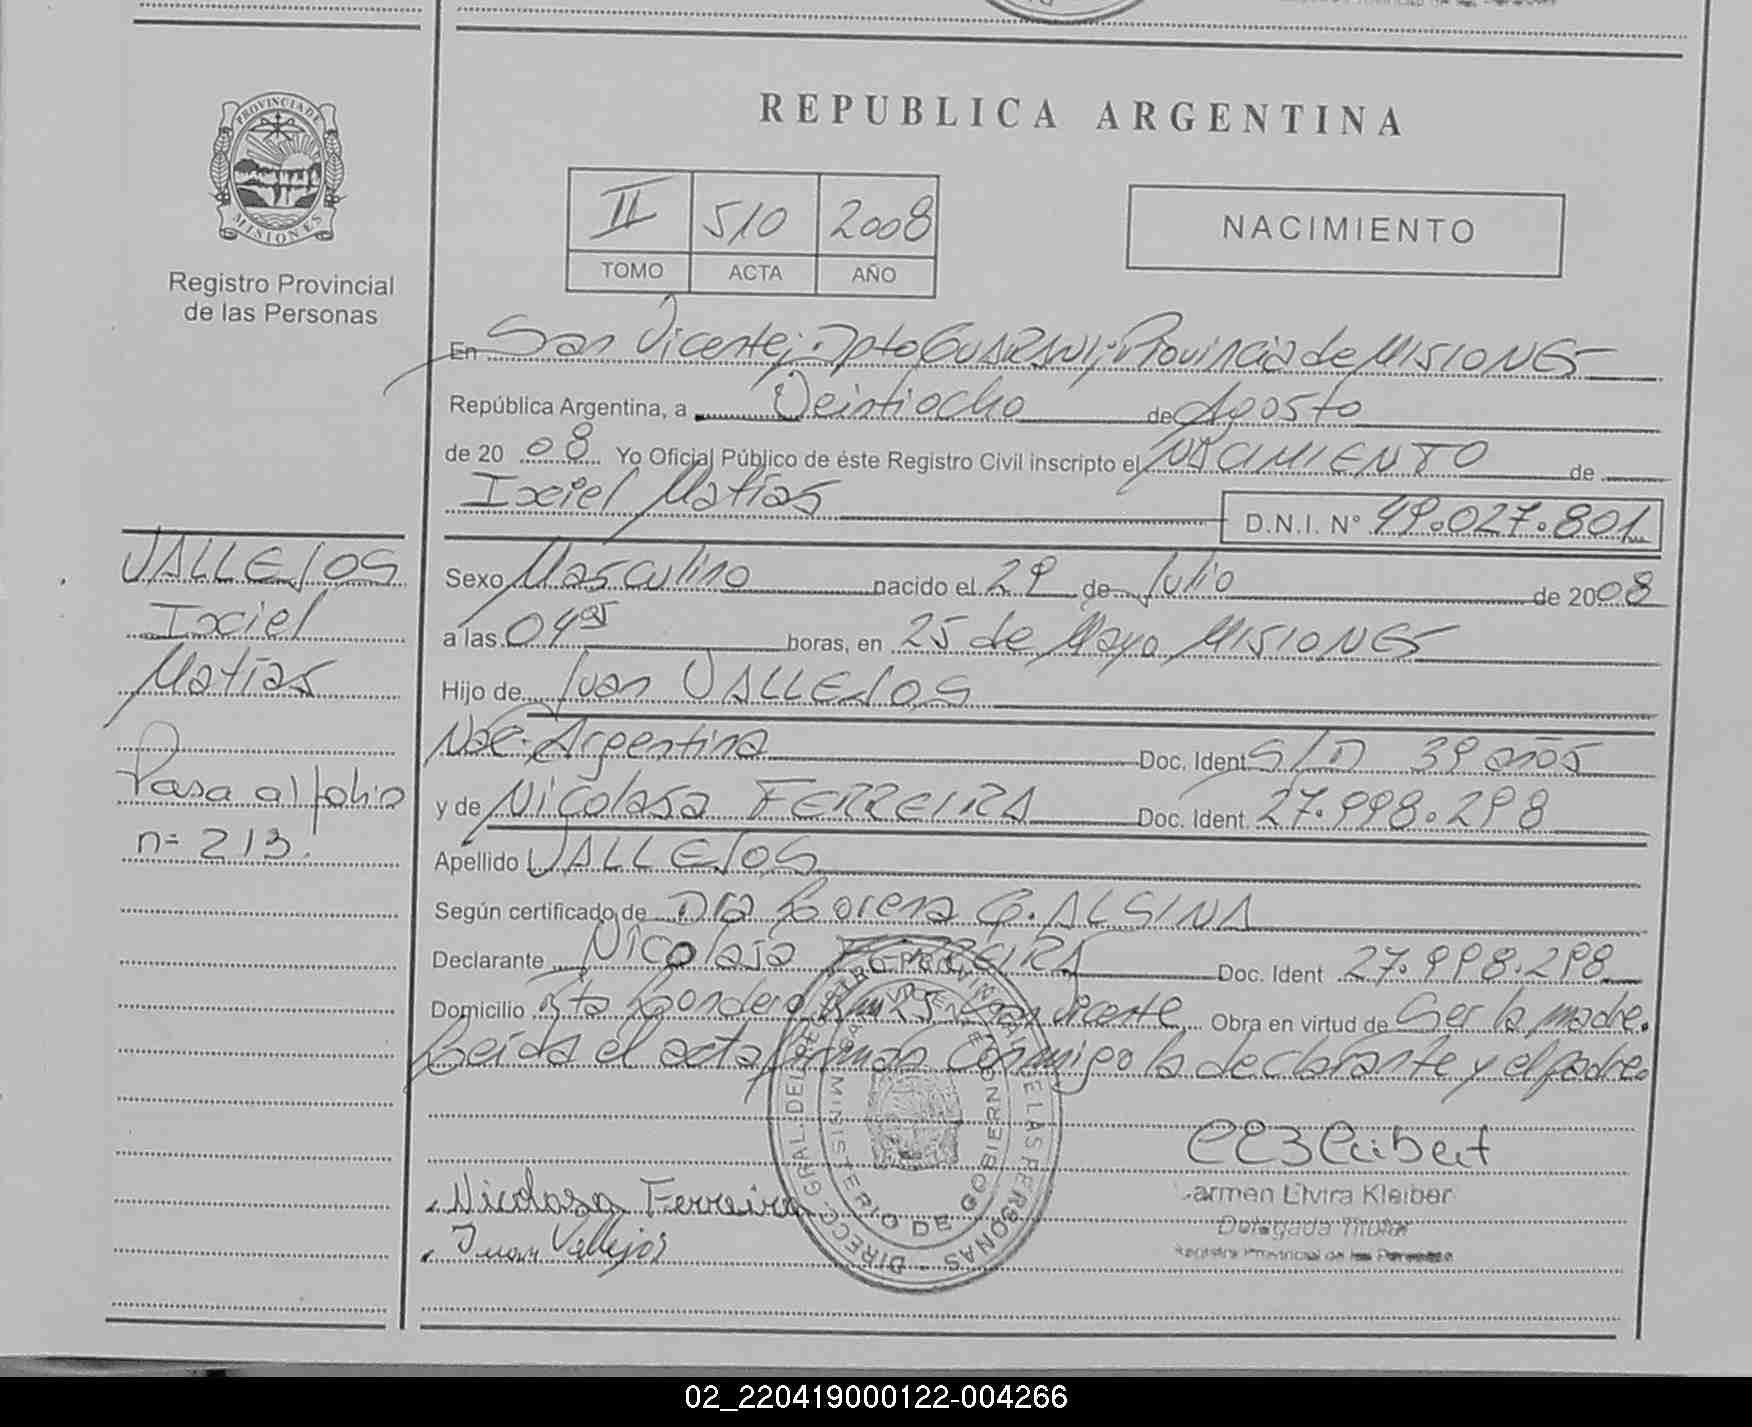 REPUBLICA ARGENTINA
PROVINCIA DE
MISIONES
Registro Provincial
de las Personas
II 510 2008
TOMO ACTA AÑO
NACIMIENTO
En San Vicente; Dpto GUARANI; Provincia de MISIONES
República Argentina, a Veintiocho de Agosto
de 20 08 Yo Oficial Público de éste Registro Civil inscripto el NACIMIENTO de
Ixciel Matías D.N.I. N° 49.027.801
Sexo Masculino nacido el 29 de Julio de 2008
a las 04 horas, en 25 de Mayo MISIONES
Hijo de Juan VALLEJOS
Nac. Argentina Doc. Ident S/D 39 años
y de Nicolasa FERREIRA Doc. Ident. 27.998.298
Apellido VALLEJOS
Según certificado de Dra Lorena G. ALSINA
Declarante Nicolasa FERREIRA Doc. Ident 27.998.298
Domicilio San Vicente Obra en virtud de Ser la madre.
Leída el acta firman conmigo la declarante y el padre.
Nicolasa Ferreira
Juan Vallejos
Carmen Elvira Kleiber
Delegada Titular
Registro Provincial de las Personas
DIRECC. GRAL. DEL REGISTRO PROVINCIAL DE LAS PERSONAS
MINISTERIO DE GOBIERNO
VALLEJOS
Ixciel
Matías
Pasa al folio
n= 213.
02_220419000122-004266